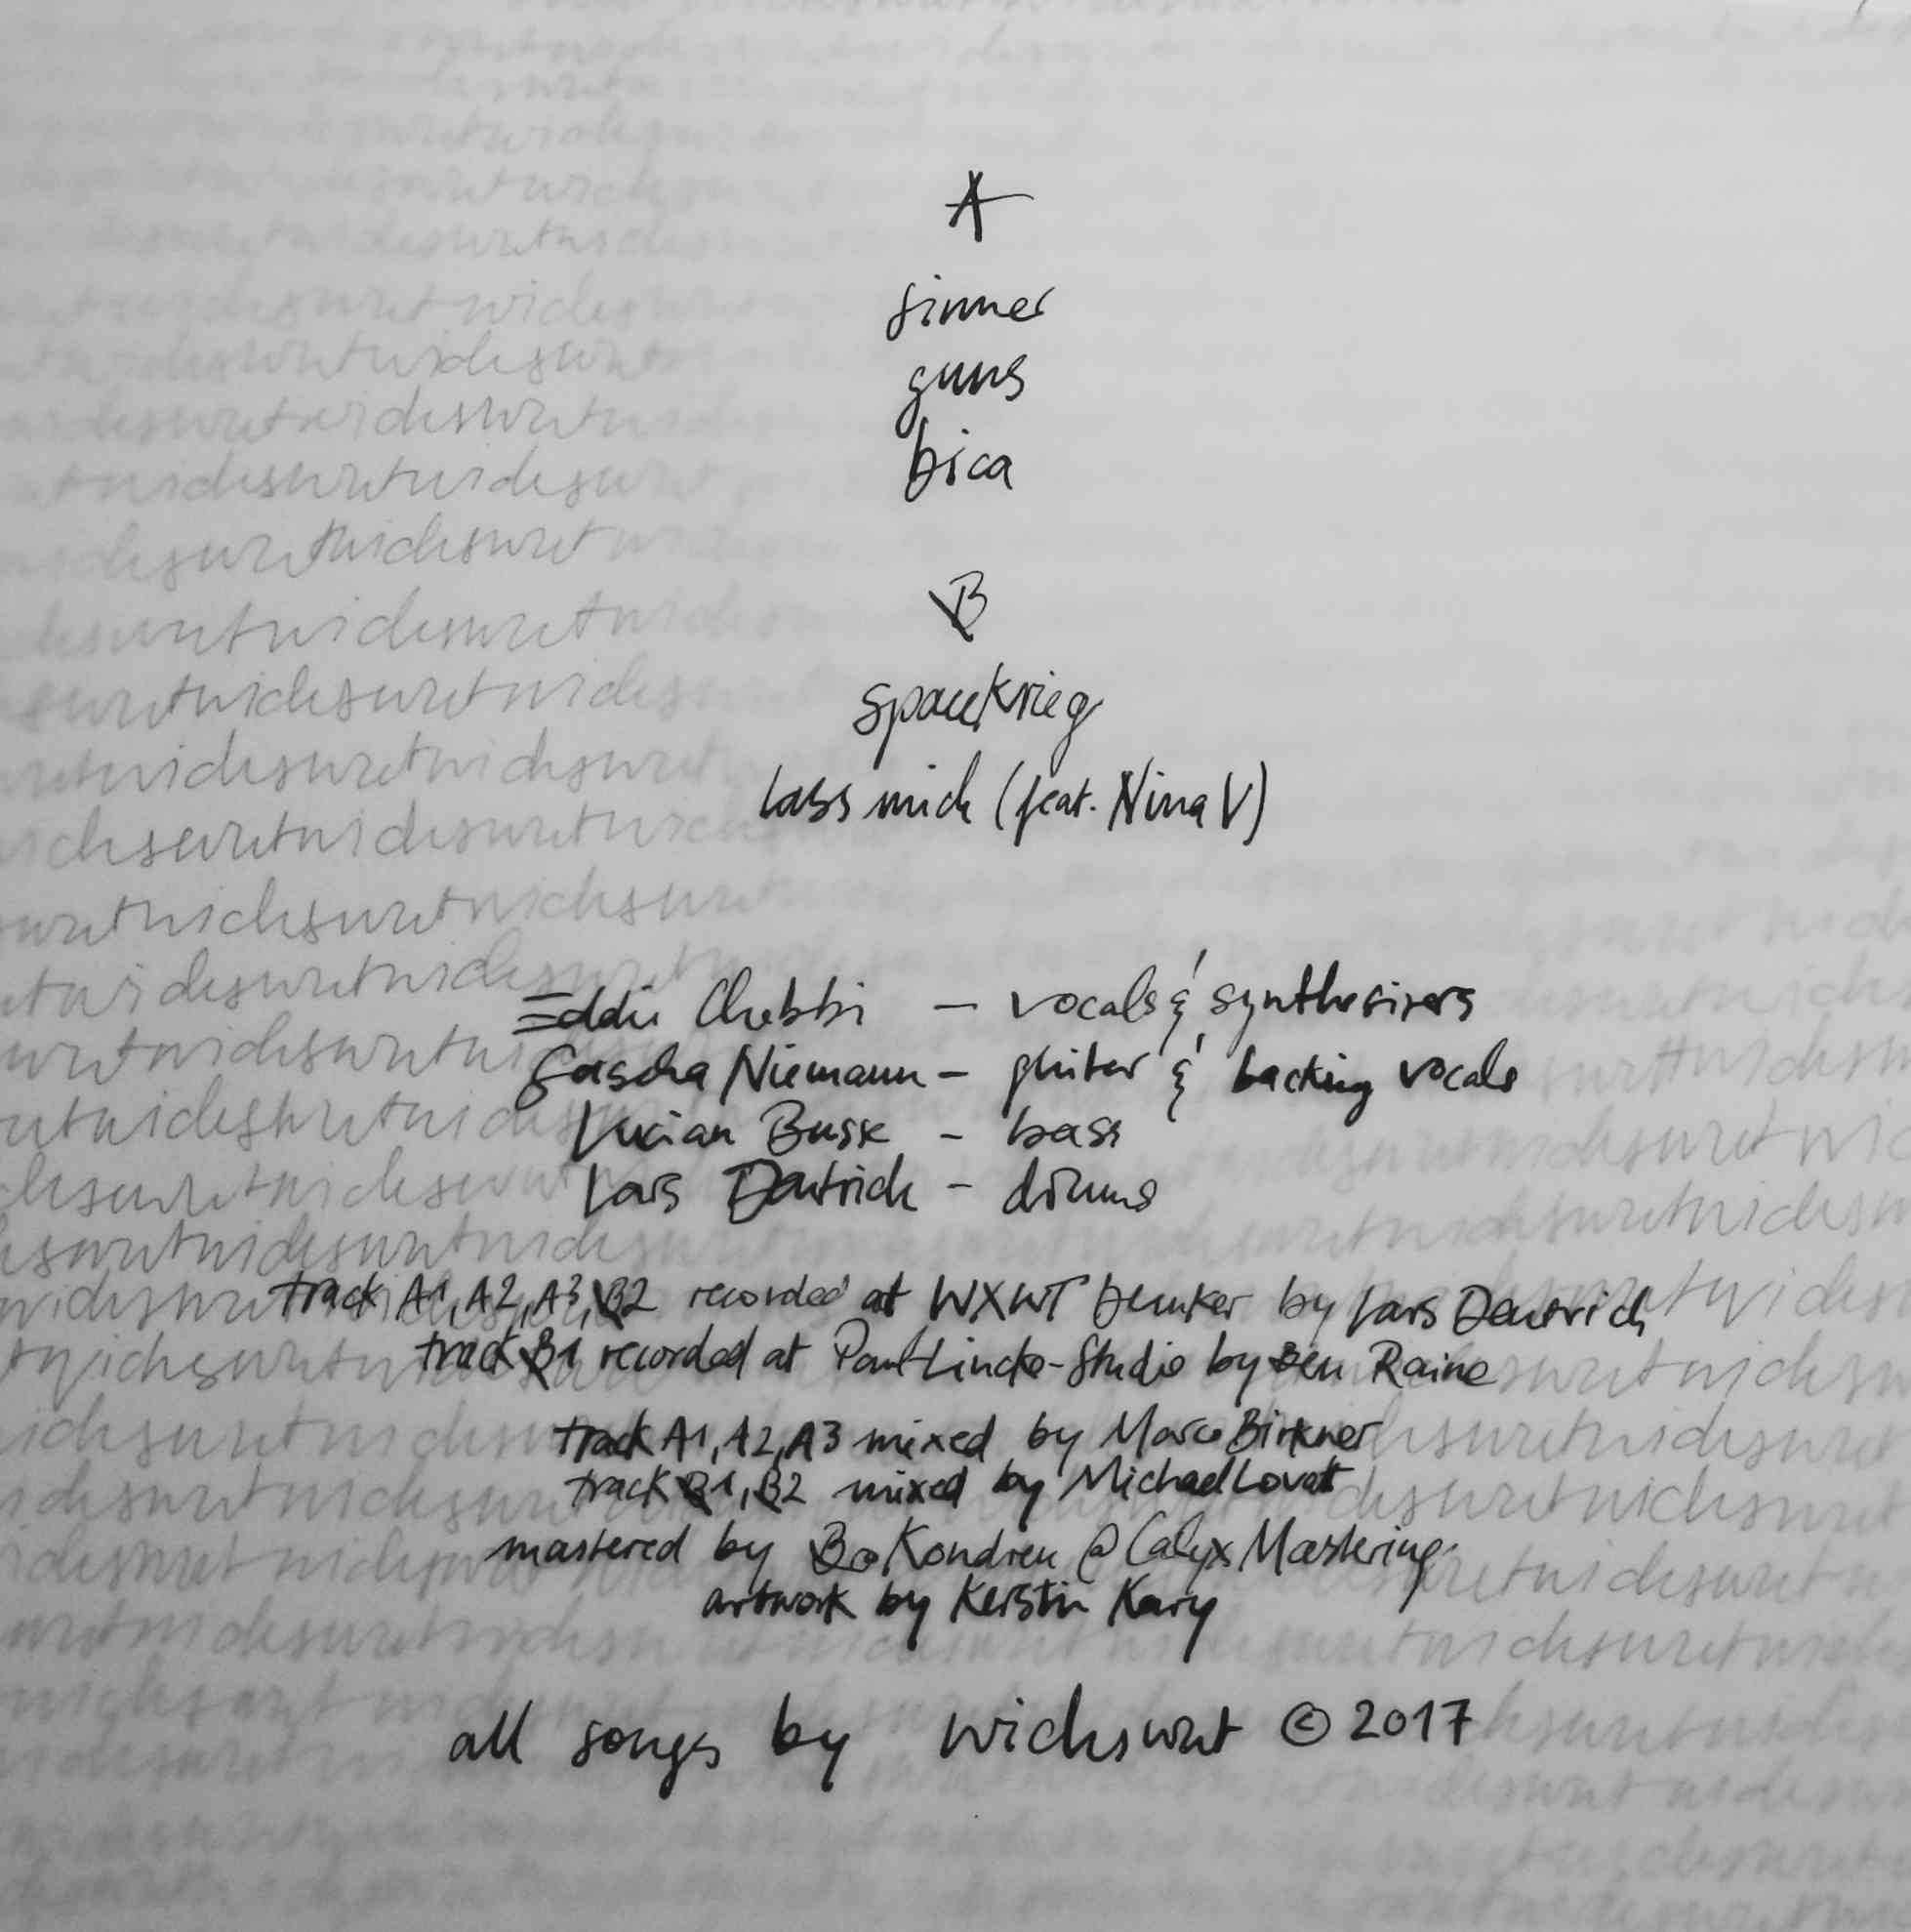 A
sinner
guns
bica
B
spacekrieg
lass mich (feat. Nina V)
Eddie Chebbi – vocals & synthesizers
Sascha Niemann – guitar & backing vocals
Lucian Busse – bass
Lars Deutrich – drums
track A1, A2, A3, B2 recorded at WXWT bunker by Lars Deutrich
track B1 recorded at Paul Lincke-Studio by Ben Raine
track A1, A2, A3 mixed by Marco Birkner
track B1, B2 mixed by Michael Lovatt
mastered by Bo Kondren @ Calyx Mastering
artwork by Kerstin Kary
all songs by wichswut © 2017